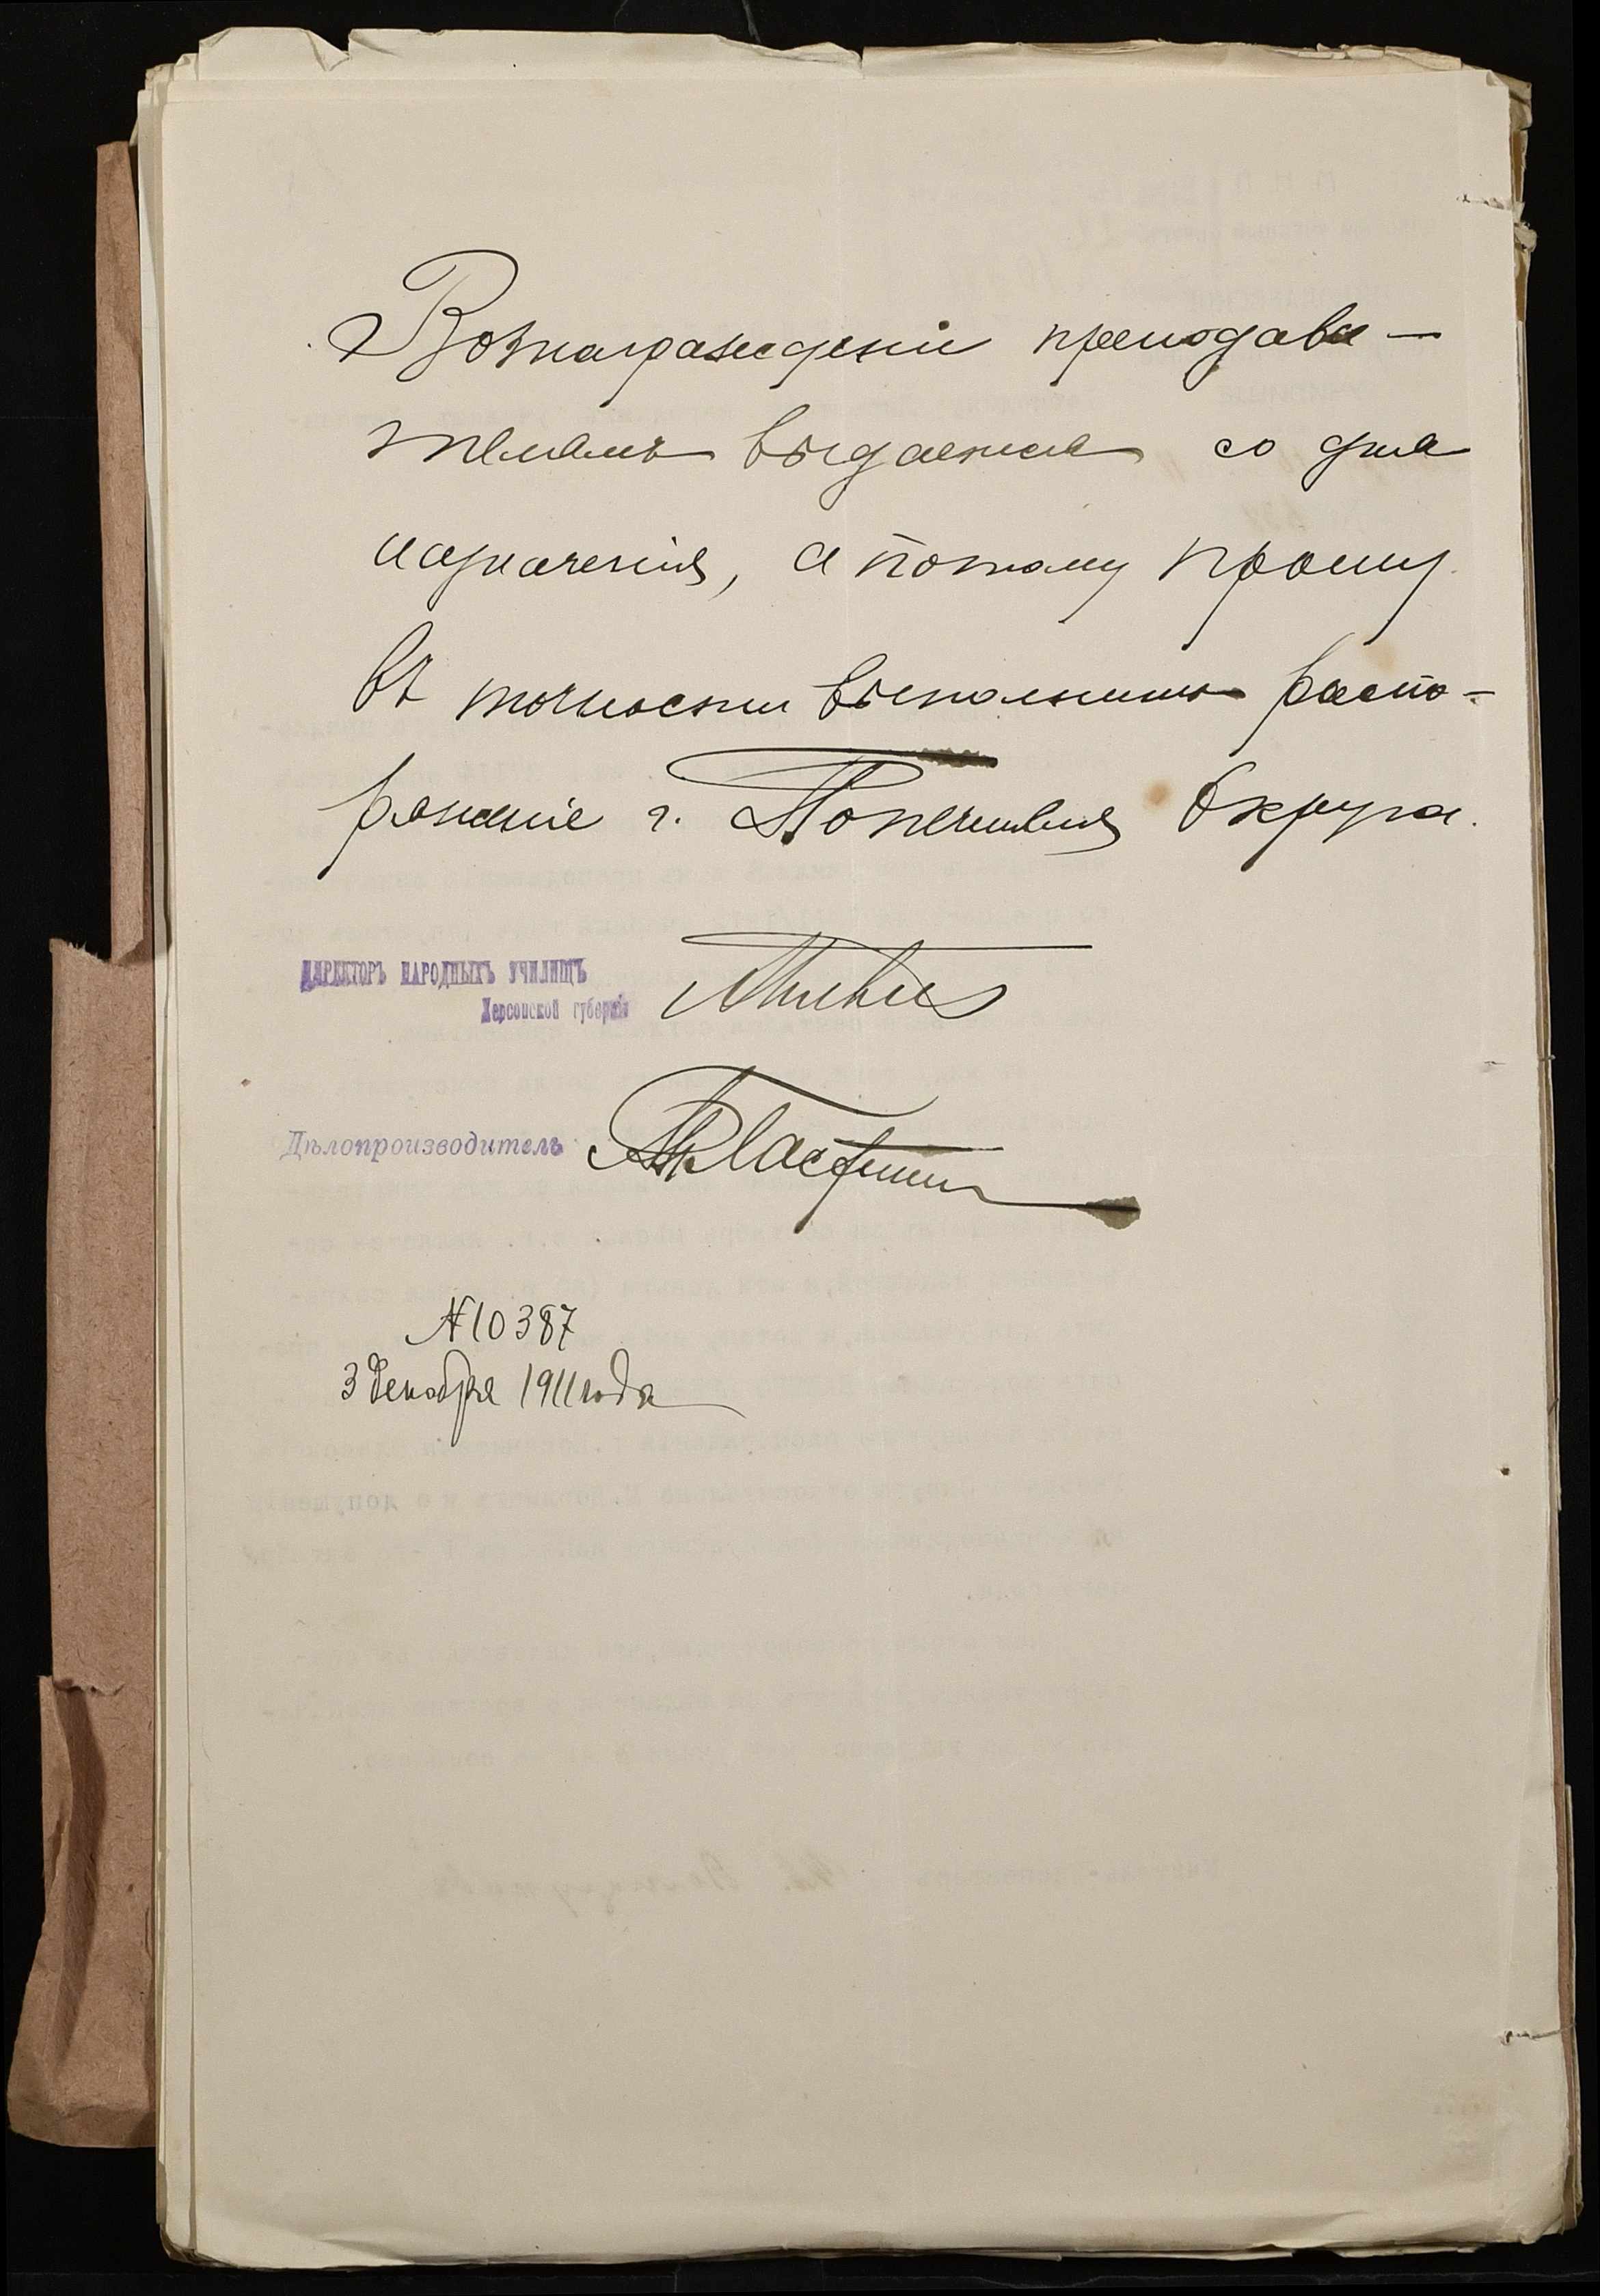 Вознагражденіе преподава-
телямъ выдается со дня
назначенія, а потому прошу
въ точности выполнить распо-
ряженіе г. Попечителя Округа.
ДИРЕКТОРЪ НАРОДНЫХЪ УЧИЛИЩЪ
Херсонской губерніи
Дѣлопроизводитель
№10387
3 декабря 1911 года